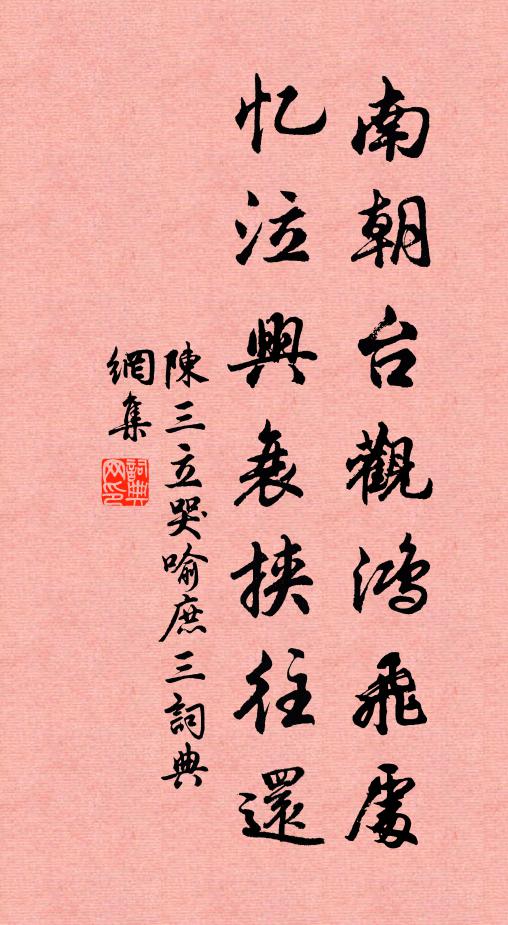 南朝台觀鴻飛處
忆泣興衰挟往還
陳三立哭喻庶三詞典
網集
詞典網印